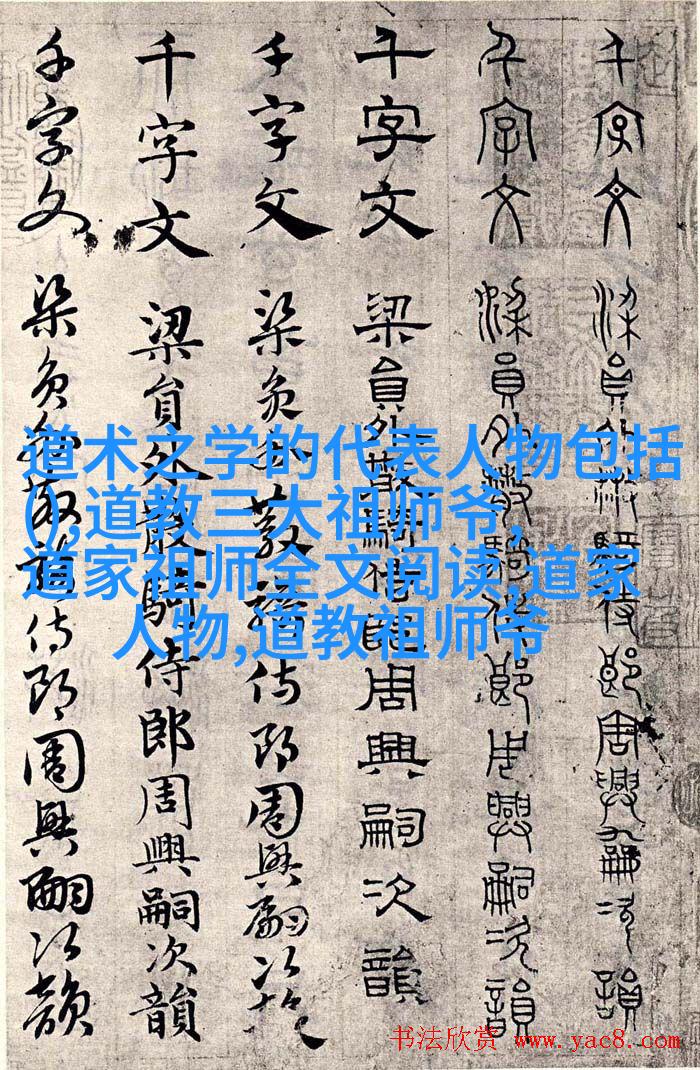 千字文 梁員外散騎侍郎周興嗣次韻
千字文 梁員外散騎侍郎周興嗣次韻
千字文 梁員外散騎侍郎周興嗣次韻
千字文 梁員外散騎侍郎周興嗣次韻
千字文 梁員外散騎侍郎周興嗣次韻
千字文 梁員外散騎侍郎周興嗣次韻
道术之学的代表人物包括
(),道教三大祖师爷,
道家祖师全文阅读,道家
人物,道教祖师爷
书法欣赏 www.yac8.com